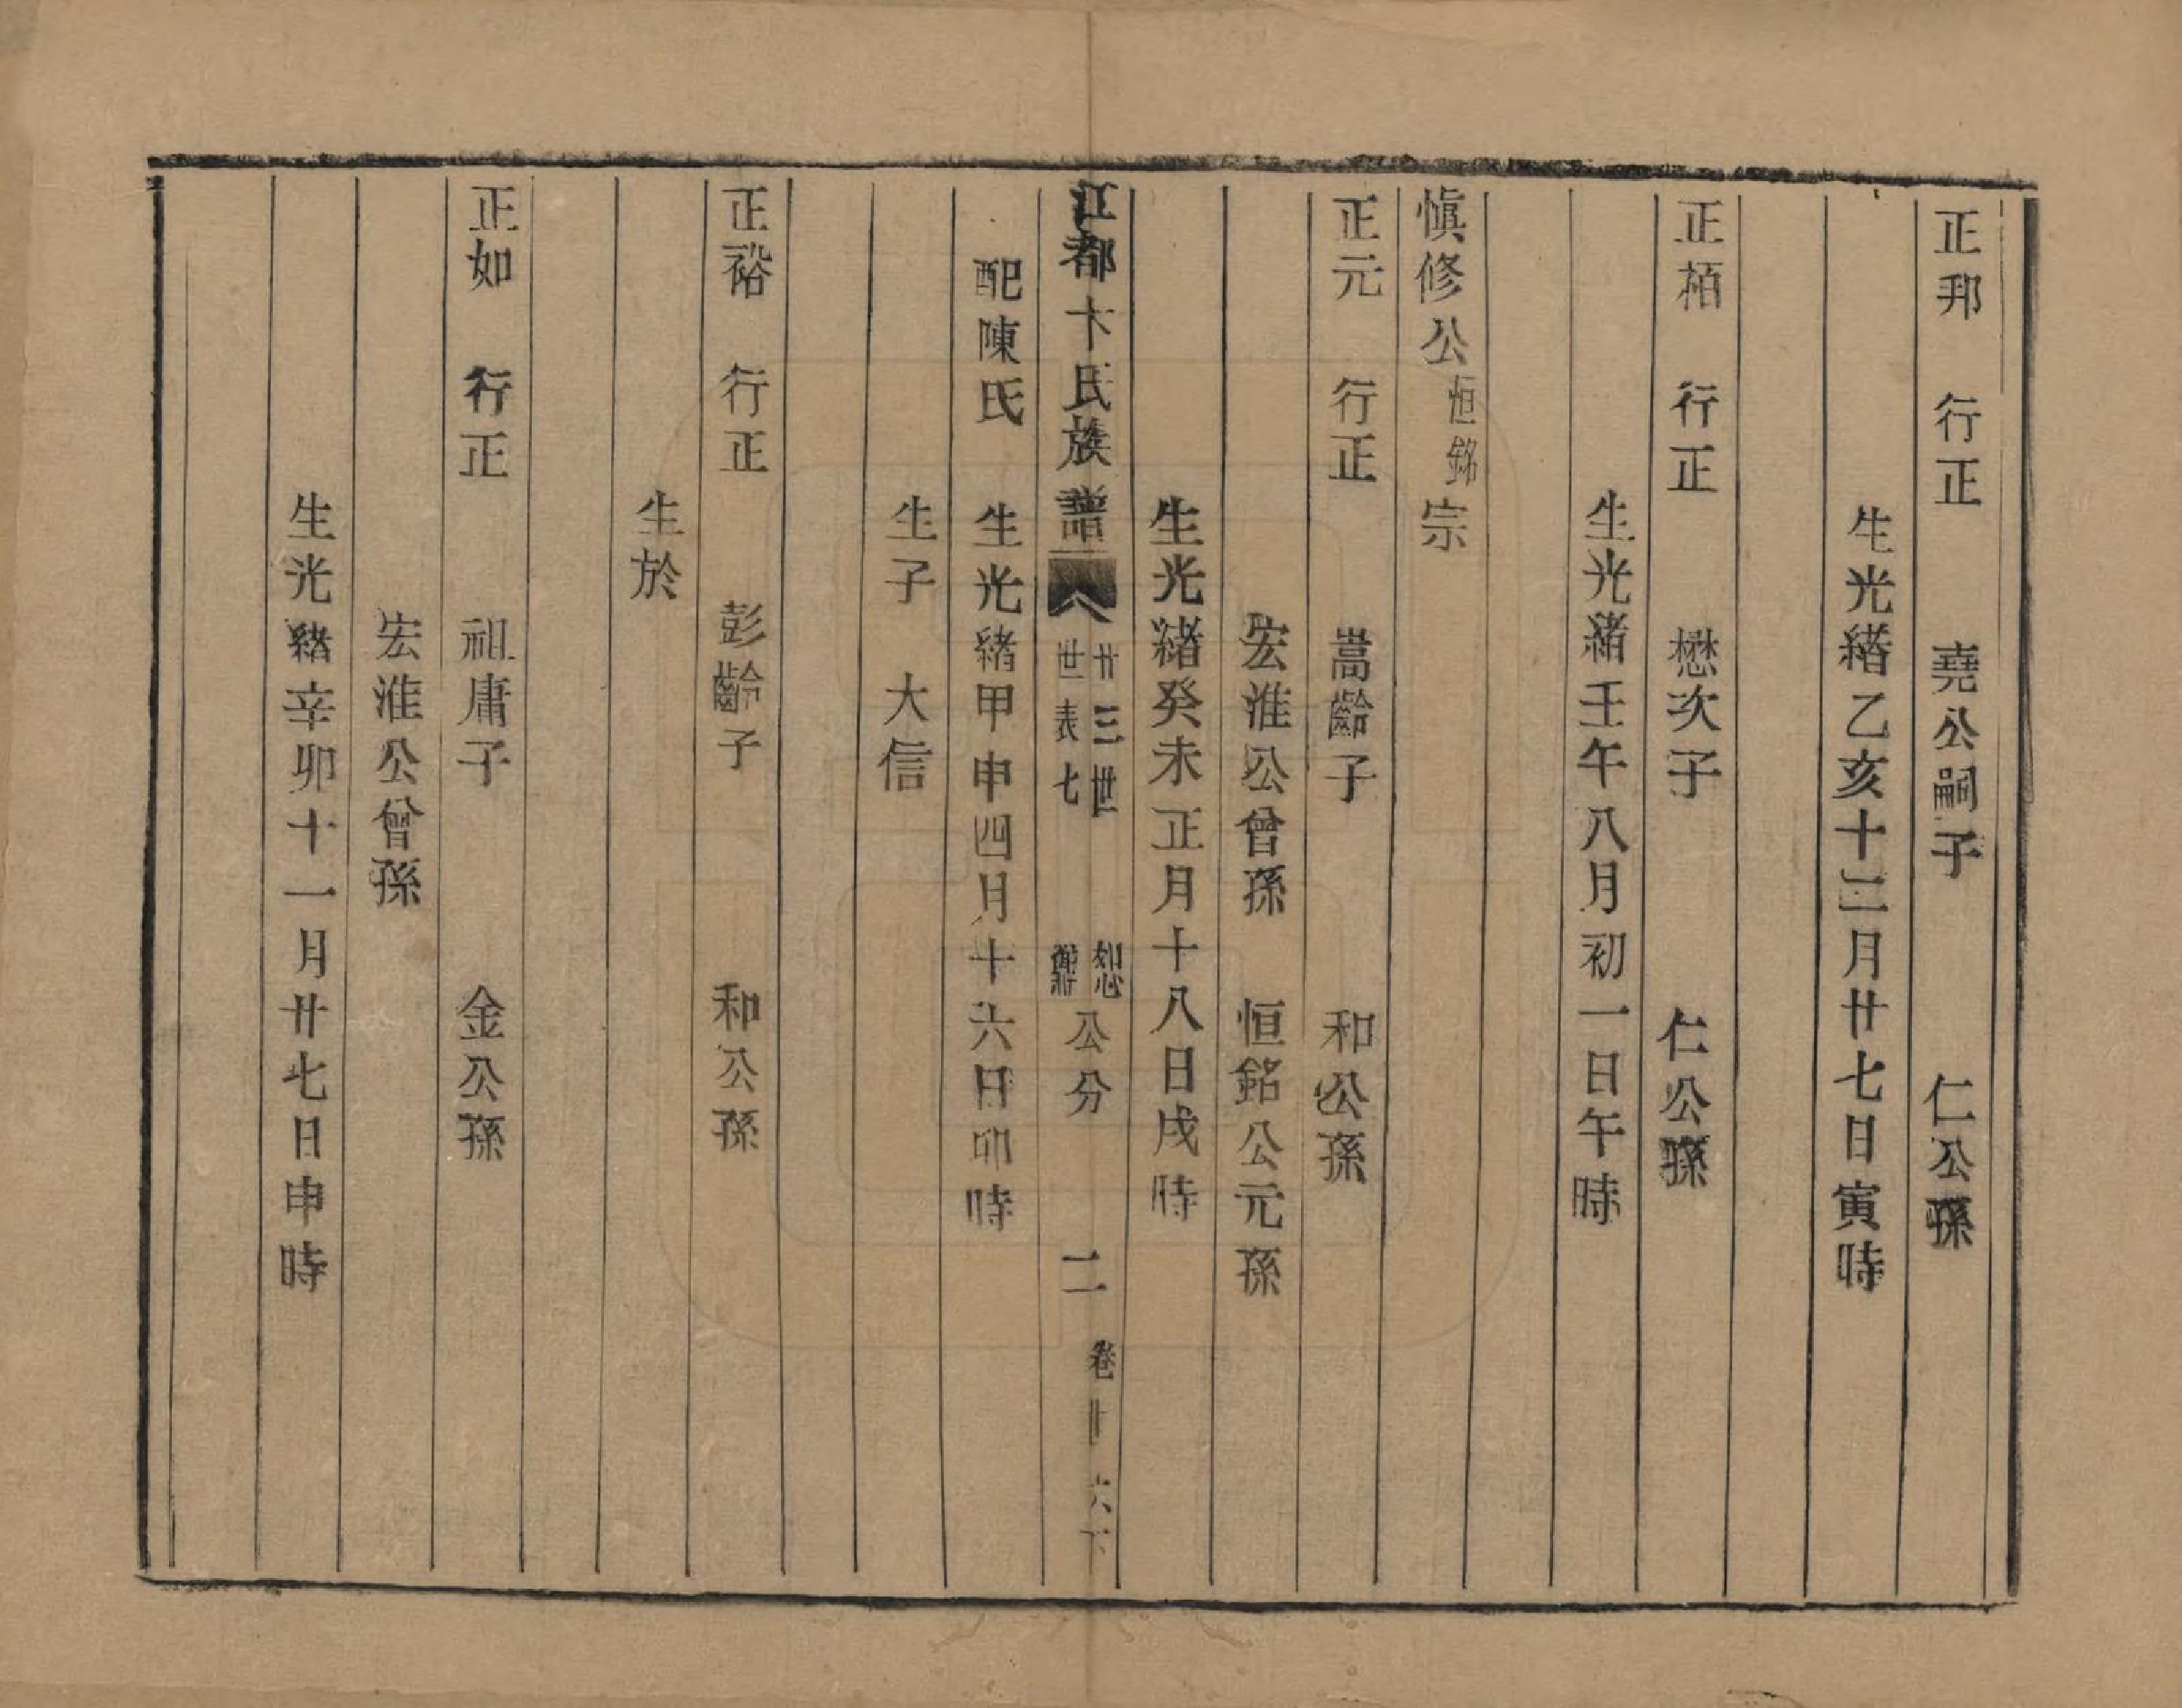 正邦　行正　堯公嗣子　仁公孫
生光緒乙亥十二月廿七日寅時
正栢　行正　懋次子　仁公孫
生光緒壬午八月初一日午時
慎修公恒銘宗
正元　行正　嵩齡子　和公孫
宏淮公曾孫　恒銘公元孫
生光緒癸未正月十八日戌時
江都卞氏族譜　廿三世世表七　恕公分　二　卷廿六下
配陳氏　生光緒甲申四月十六日卯時
生子　大信
正裕　行正　彭齡子　和公孫
生於
正如　行正　祖庸子　金公孫
宏淮公曾孫
生光緒辛卯十一月廿七日申時